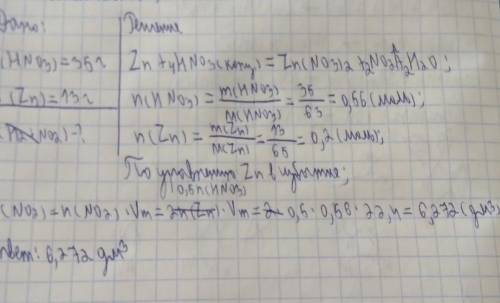 Дано:
Решение
(HNO3)=35г
Zn + 4HNO3(конц) = Zn(NO3)2 + 2NO2↑ + 2H2O;
(Zn)=13г
n(HNO3) = m(HNO3)/M(HNO3) = 35/63 = 0,56 (моль);
(NO2)-?
n(Zn) = m(Zn)/M(Zn) = 13/65 = 0,2 (моль);
По уравнению Zn в избытке;
0,5n(HNO3)
(NO2) = n(NO2) · Vm = 2n(Zn) · Vm = 2 0,5 · 0,56 · 22,4 = 6,272 (дм3)
твет: 6,272 дм3